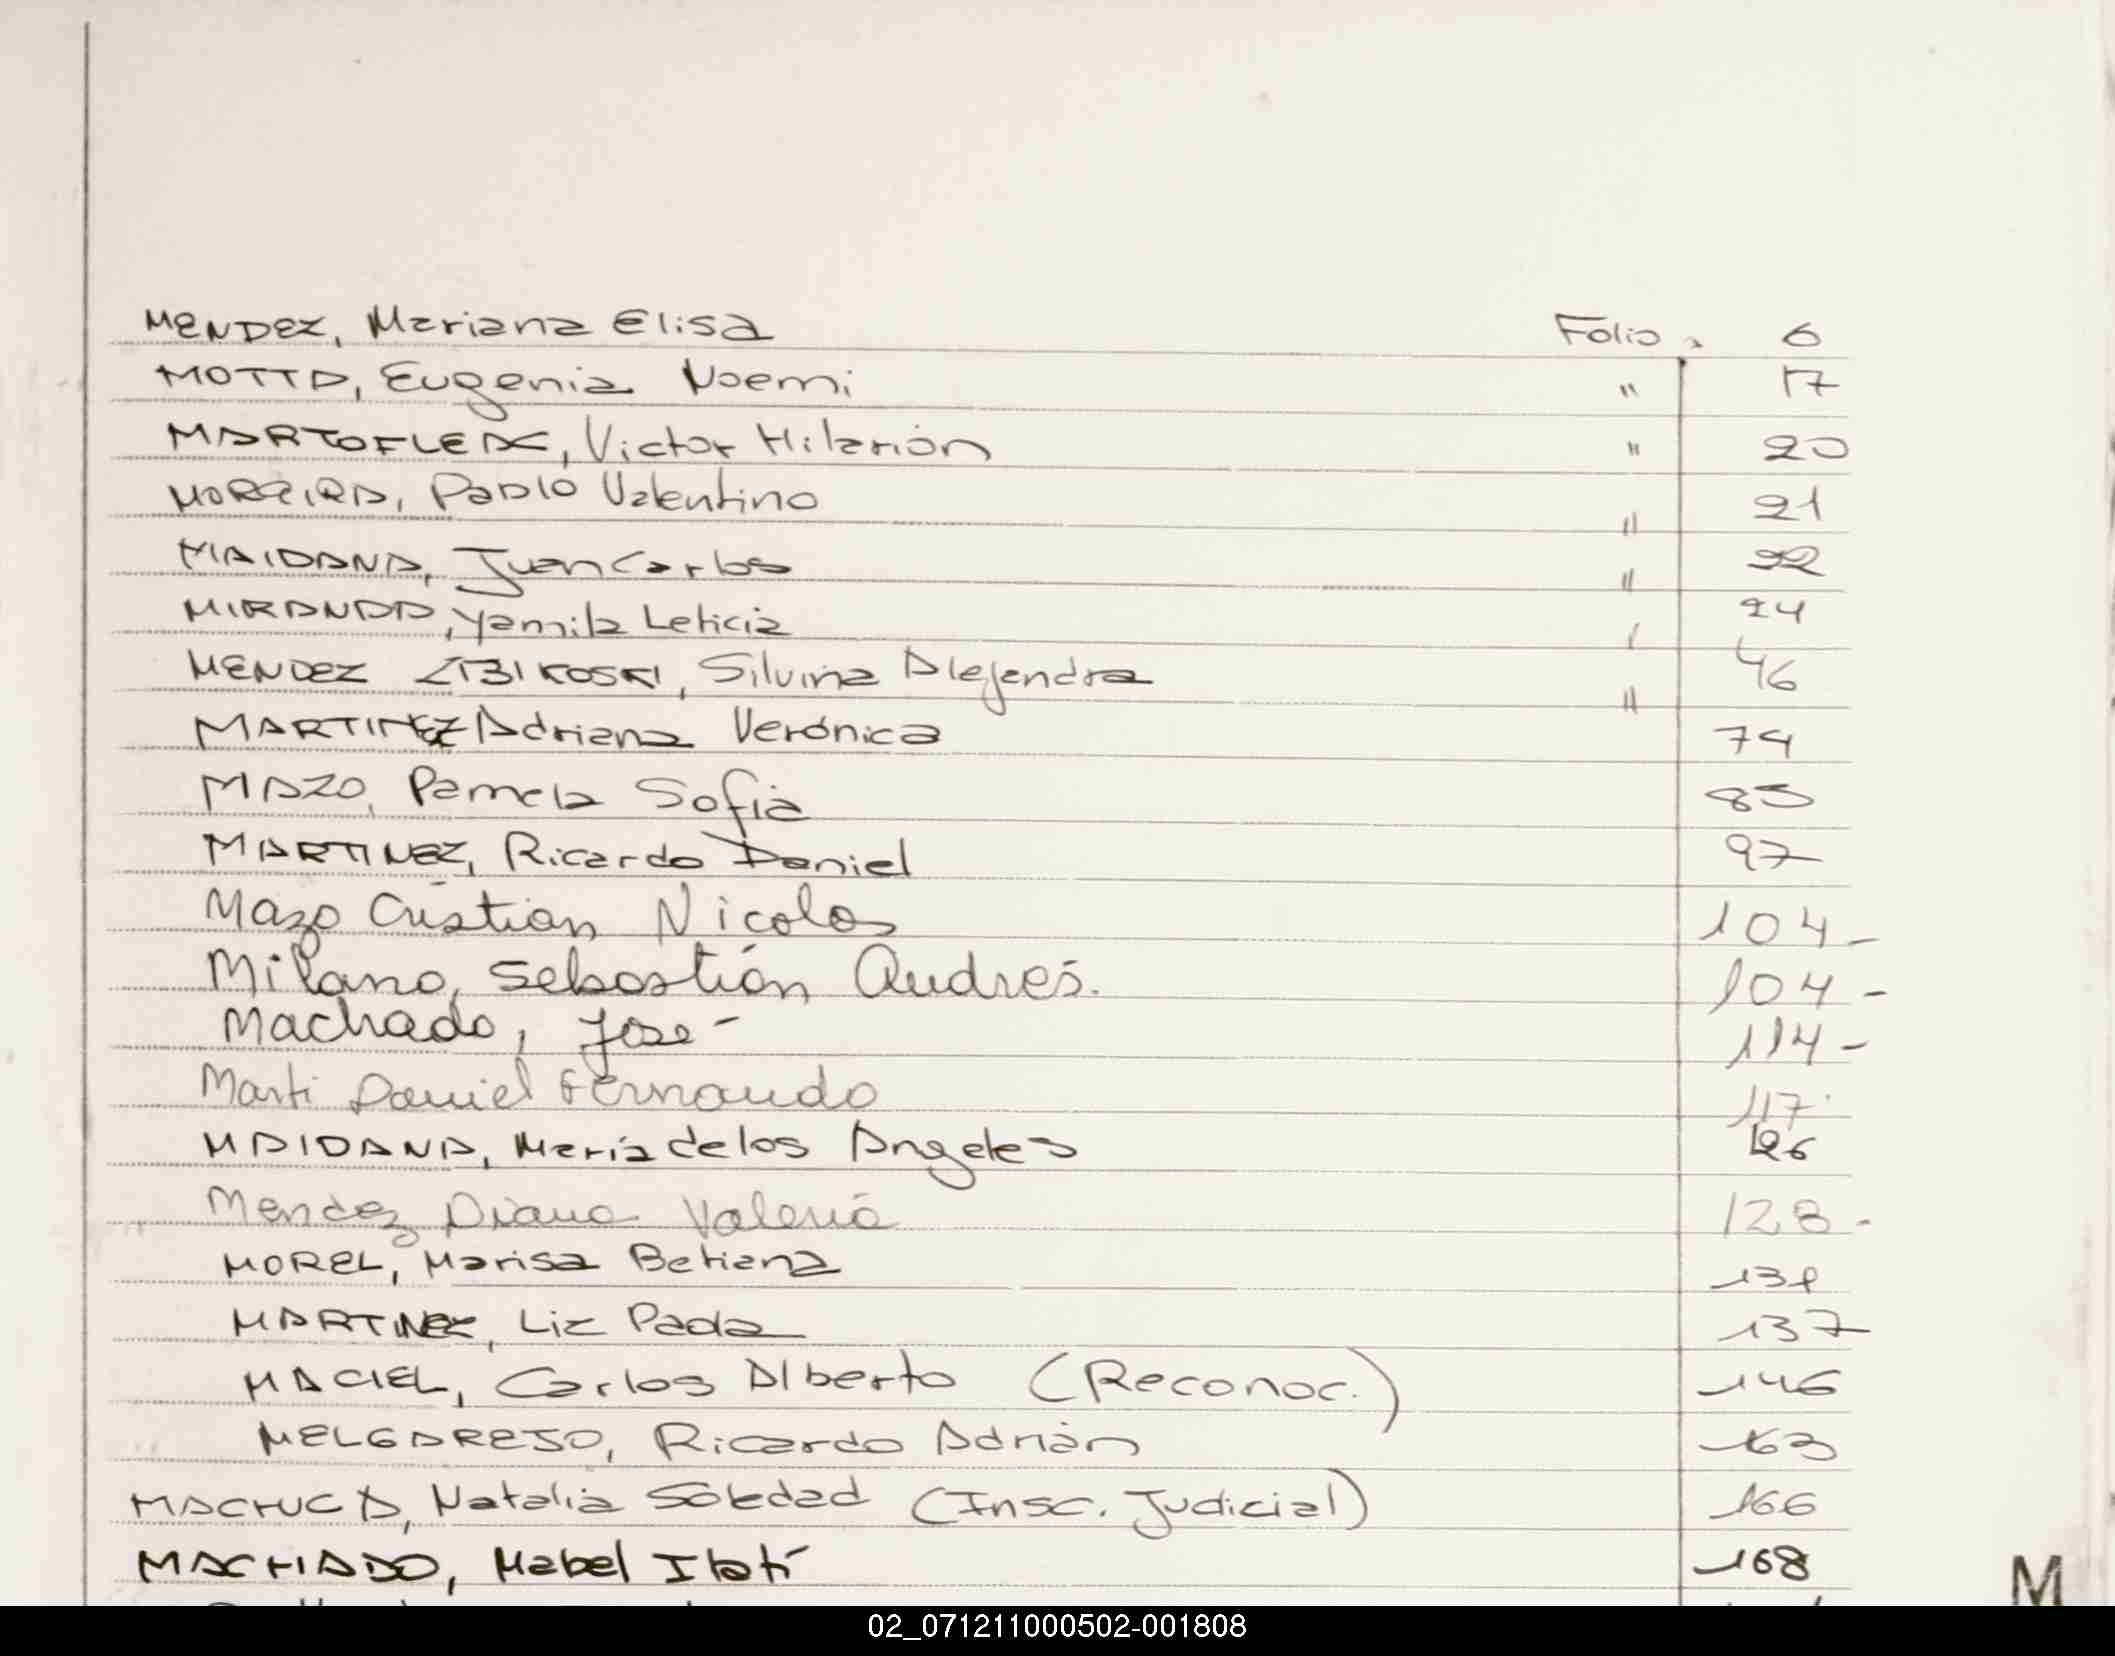 MENDEZ, Mariana Elisa Folio. 6
MOTTA, Eugenia Noemi " 17
MARTOFLEAC, Victor Hilarión " 20
MOREIRA, Pablo Valentino " 21
MAIDANA, Juan Carlos " 22
MIRANDA, Yamila Leticia 24
MENDEZ, Silvina Alejandra " 46
MARTINEZ Adriana Verónica 74
MAZO, Pamela Sofia 85
MARTINEZ, Ricardo Daniel 97
Mazo Cristian Nicolas 104-
Milano, Sebastián Andrés. 104-
Machado, José 114-
Marti Daniel Fernando 117
MAIDANA, María de los Angeles 126
Mendez Diana Valeria 128-
MOREL, Marisa Betiana
MARTINEZ, Liz Paola 137
MACIEL, Carlos Alberto (Reconoc.) 146
MELGAREJO, Ricardo Adrián 163
MACHUCA, Natalia Soledad (Insc. Judicial) 166
MACHADO, Mabel Itatí 168
M
02_071211000502-001808